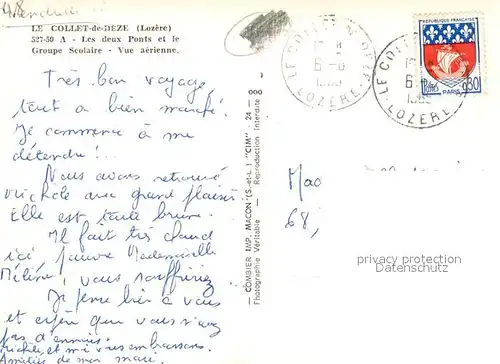 LE COLLET-de-DÈZE (Lozère)
527-50 A - Les deux Ponts et le
Groupe Scolaire - Vue aérienne.
Très bon voyage,
tout a bien marché.
Je commence à me
détendre!..
Nous avons retrouvé
Michèle avec grand plaisir
Elle est toute brune.
Il fait très chaud
ici, pauvre Mademoiselle
vous souffririez
Je pense bien à vous
et espère que vous n'avez
pas d'ennuis.
Michèle et moi vous embrassons.
Amitiés de mon mari.
COMBIER IMP. MACON (S.-et-L.) "CIM" - 24 - 000
Photographie Véritable - Reproduction Interdite
LE COLLET DE DEZE
LOZERE
LE COLLET
LOZERE
REPUBLIQUE FRANÇAISE
POSTES
0,30
PARIS
Mad
68,
privacy protection
Datenschutz